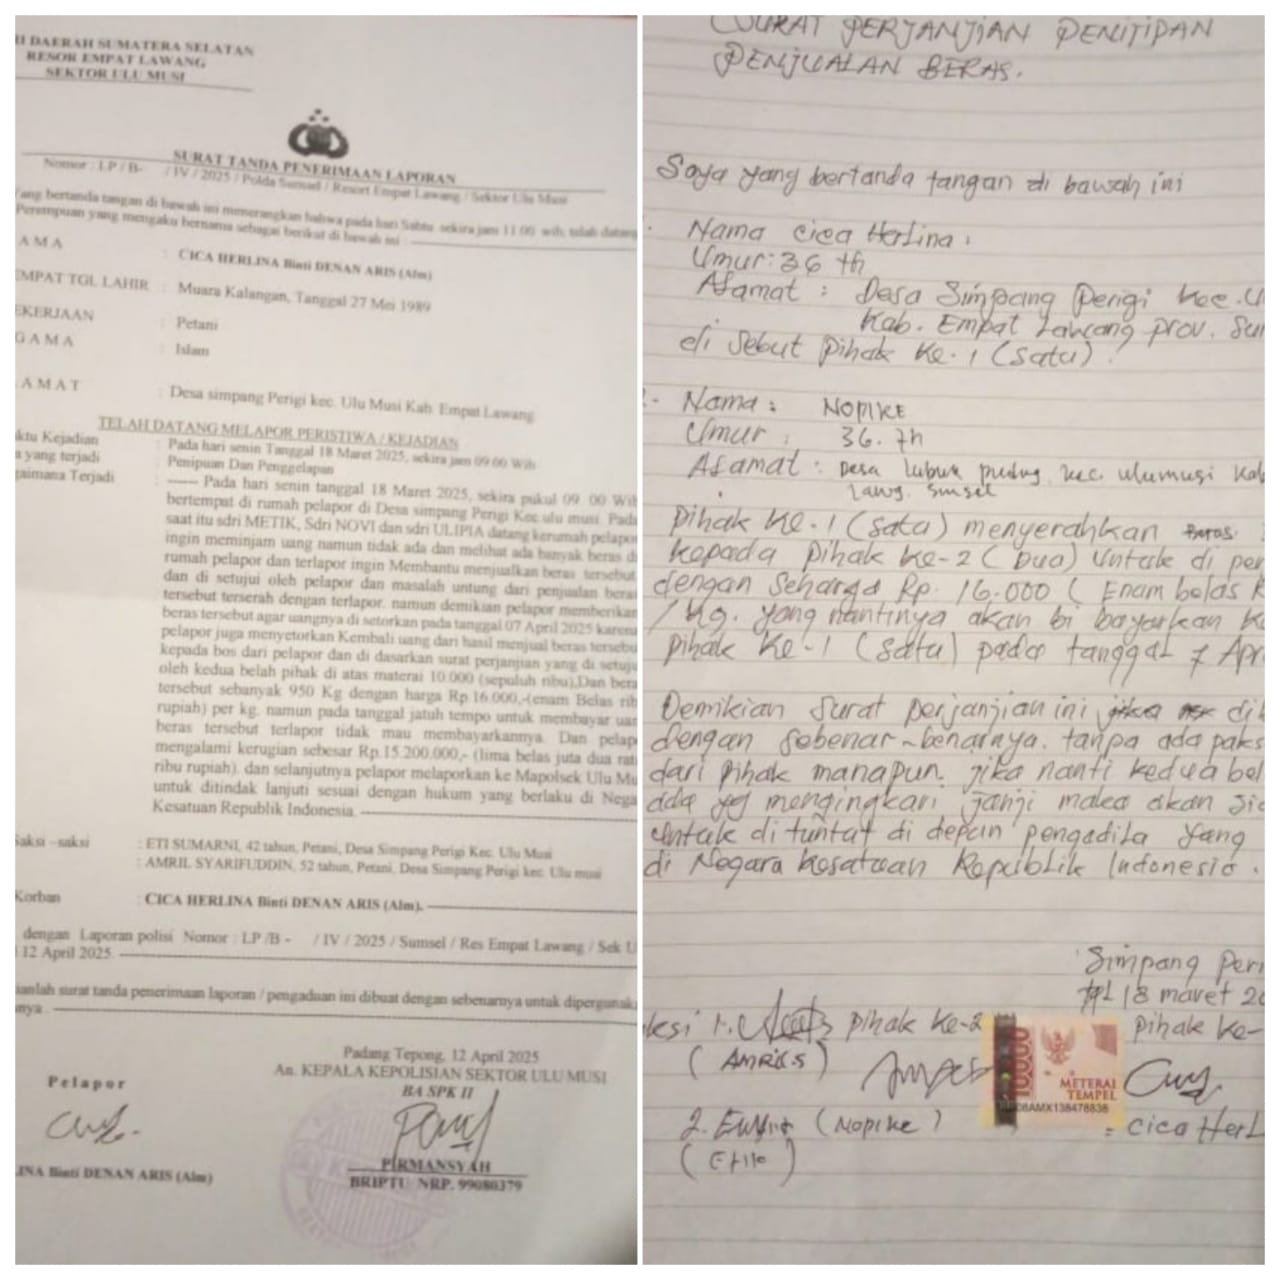 I DAERAH SUMATERA SELATAN
RESOR EMPAT LAWANG
SEKTOR ULU MUSI
SURAT TANDA PENERIMAAN LAPORAN
Nomor : LP / B- / IV / 2025 / Polda Sumsel / Resort Empat Lawang / Sektor Ulu Musi
ang bertanda tangan di bawah ini menerangkan bahwa pada hari Sabtu sekira jam 11.00 wib, telah datang
Perempuan yang mengaku bernama sebagai berikut di bawah ini :
AMA : CICA HERLINA Binti DENAN ARIS (Alm)
EMPAT TGL LAHIR : Muara Kalangan, Tanggal 27 Mei 1989
EKERJAAN : Petani
GAMA : Islam
AMAT : Desa simpang Perigi kec. Ulu Musi Kab. Empat Lawang
TELAH DATANG MELAPOR PERISTIWA / KEJADIAN
ktu Kejadian : Pada hari senin Tanggal 18 Maret 2025, sekira jam 09.00 Wib
a yang terjadi : Penipuan Dan Penggelapan
gaimana Terjadi : ------ Pada hari senin tanggal 18 Maret 2025, sekira pukul 09. 00 Wib
bertempat di rumah pelapor di Desa simpang Perigi Kec.ulu musi. Pada
saat itu sdri METIK, Sdri NOVI dan sdri ULIPIA datang kerumah pelapo
ingin meminjam uang namun tidak ada dan melihat ada banyak beras di
rumah pelapor dan terlapor ingin Membantu menjualkan beras tersebut
dan di setujui oleh pelapor dan masalah untung dari penjualan bera
tersebut terserah dengan terlapor. namun demikian pelapor memberikan
beras tersebut agar uangnya di setorkan pada tanggal 07 April 2025 karena
pelapor juga menyetorkan Kembali uang dari hasil menjual beras tersebu
kepada bos dari pelapor dan di dasarkan surat perjanjian yang di setuju
oleh kedua belah pihak di atas materai 10.000 (sepuluh ribu),Dan bera
tersebut sebanyak 950 Kg dengan harga Rp.16.000,-(enam Belas rib
rupiah) per kg. namun pada tanggal jatuh tempo untuk membayar uan
beras tersebut terlapor tidak mau membayarkannya. Dan pelap
mengalami kerugian sebesar Rp.15.200.000,- (lima belas juta dua rat
ribu rupiah). dan selanjutnya pelapor melaporkan ke Mapolsek Ulu Mu
untuk ditindak lanjuti sesuai dengan hukum yang berlaku di Nega
Kesatuan Republik Indonesia.
Saksi –saksi : ETI SUMARNI, 42 tahun, Petani, Desa Simpang Perigi Kec. Ulu Musi
: AMRIL SYARIFUDDIN, 52 tahun, Petani, Desa Simpang Perigi kec. Ulu musi
Korban : CICA HERLINA Binti DENAN ARIS (Alm).
dengan Laporan polisi Nomor : LP /B - / IV / 2025 / Sumsel / Res Empat Lawang / Sek U
12 April 2025.
ianlah surat tanda penerimaan laporan / pengaduan ini dibuat dengan sebenarnya untuk dipergunaka
nya
Padang Tepong, 12 April 2025
An. KEPALA KEPOLISIAN SEKTOR ULU MUSI
Pelapor
BA SPK II
LINA Binti DENAN ARIS (Alm)
PIRMANSYAH
BRIPTU NRP. 99080379
SURAT PERJANJIAN PENITIPAN
PENJUALAN BERAS.
Saya yang bertanda tangan di bawah ini
Nama Cica Herlina :
Umur : 36 th
Alamat : Desa Simpang Perigi Kec. U
Kab. Empat Lawang prov. Su
di Sebut Pihak Ke-1 (Satu).
Nama : NOPIKE
Umur : 36. Th
Alamat : Desa Lubuk puding kec. ulumusi Kab
Lawg. Sumsel
Pihak Ke-1 (Satu) menyerahkan Beras
kepada Pihak Ke-2 (Dua) Untuk di per
dengan Seharga Rp. 16.000 ( Enam belas R
/ Kg. yang nantinya akan bi bayarkan K
Pihak Ke-1 (Satu) pada tanggal 7 Apr
Demikian Surat perjanjian ini di
dengan sebenar-benarnya. tanpa ada paks
dari pihak manapun. jika nanti kedua bel
ada yg mengingkari janji maka akan Sia
Untuk di tuntut di depan pengadila yang
di Negara Kesatuan Republik Indonesia.
Simpang Peri
tgl 18 maret 20
ksi 1. Pihak Ke-2 Pihak Ke-
(AMRIL.S)
10000
METERAI
TEMPEL
AMX138478838
2. (Nopike) Cica Herl